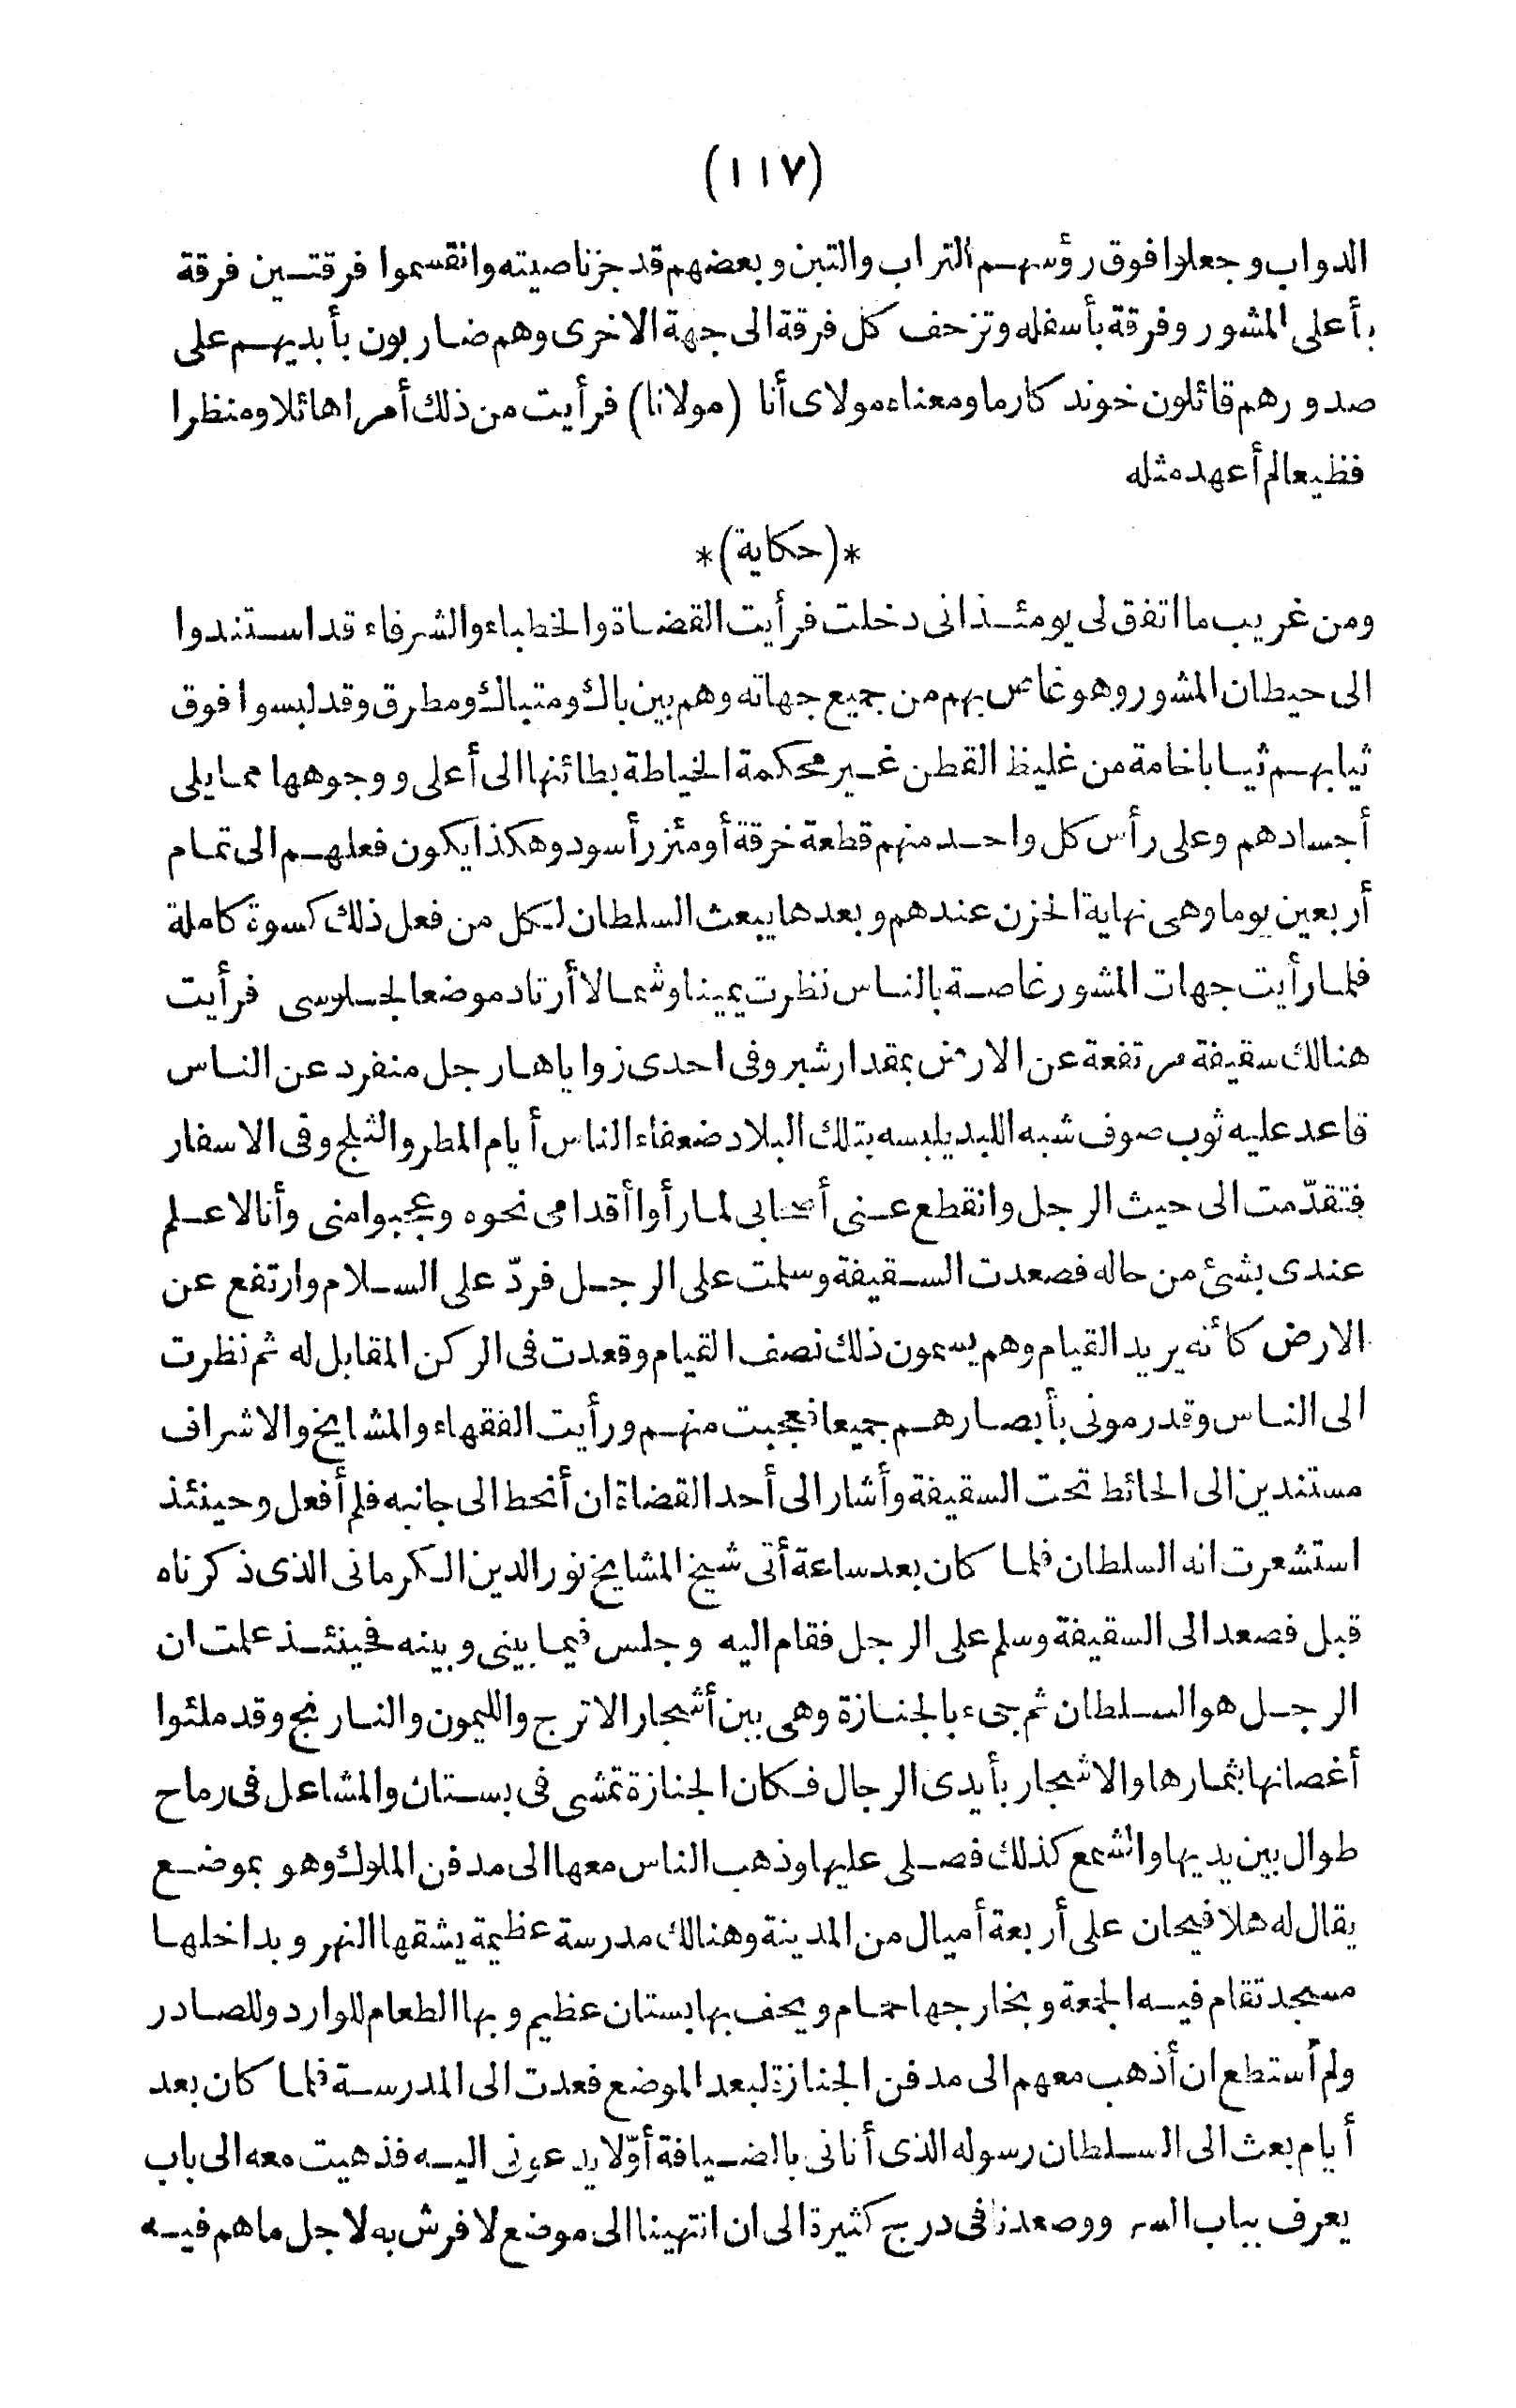 (١١٧)
الدواب وجعلوا فوق رؤسهم التراب والتبن وبعضهم قد جز ناصيته وانقسموا فرقتين فرقة
بأعلى المشور وفرقة بأسفله وتزحف كل فرقة الى جهة الاخرى وهم ضاربون بأيديهم على
صدورهم قائلون خوند كارما ومعناه مولاى أنا (مولانا) فرأيت من ذلك أمرا هائلا ومنظرا
فظيعا لم أعهد مثله
*(حكاية)*
ومن غريب ما اتفق لى يومئذ انى دخلت فرأيت القضاة والخطباء والشرفاء قد استندوا
الى حيطان المشور وهو غاص بهم من جميع جهاته وهم بين باك ومتباك ومطرق وقد لبسوا فوق
ثيابهم ثيابا خامة من غليظ القطن غير محكمة الخياطة بطائنها الى أعلى ووجوهها مما يلى
أجسادهم وعلى رأس كل واحد منهم قطعة خرقة أو مئزر أسود وهكذا يكون فعلهم الى تمام
أربعين يوما وهى نهاية الحزن عندهم وبعدها يبعث السلطان لكل من فعل ذلك كسوة كاملة
فلما رأيت جهات المشور غاصة بالناس نظرت يمينا وشمالا أرتاد موضعا لجلوسى فرأيت
هنالك سقيفة مرتفعة عن الارض بمقدار شبر وفى احدى زواياها رجل منفرد عن الناس
قاعد عليه ثوب صوف شبه اللبد يلبسه بتلك البلاد ضعفاء الناس أيام المطر والثلج وفى الاسفار
فتقدّمت الى حيث الرجل وانقطع عنى أصحابى لما رأوا أقدامى نحوه وعجبوا منى وأنا لا علم
عندى بشئ من حاله فصعدت السقيفة وسلمت على الرجل فردّ على السلام وارتفع عن
الارض كأنه يريد القيام وهم يسمون ذلك نصف القيام وقعدت فى الركن المقابل له ثم نظرت
الى الناس وقد رمونى بأبصارهم جميعا فعجبت منهم ورأيت الفقهاء والمشايخ والاشراف
مستندين الى الحائط تحت السقيفة وأشار الى أحد القضاة ان أنحط الى جانبه فلم أفعل وحينئذ
استشعرت انه السلطان فلما كان بعد ساعة أتى شيخ المشايخ نور الدين الكرمانى الذى ذكرناه
قبل فصعد الى السقيفة وسلم على الرجل فقام اليه وجلس فيما بينى وبينه فحينئذ علمت ان
الرجل هو السلطان ثم جىء بالجنازة وهى بين أشجار الاترج والليمون والنارنج وقد ملئوا
أغصانها بثمارها والاشجار بأيدى الرجال فكان الجنازة تمشى فى بستان والمشاعل فى رماح
طوال بين يديها والشمع كذلك فصلى عليها وذهب الناس معها الى مدفن الملوك وهو بموضع
يقال له هلا فيحان على أربعة أميال من المدينة وهنالك مدرسة عظيمة يشقها النهر وبداخلها
مسجد تقام فيه الجمعة وبخارجها حمام ويحف بها بستان عظيم وبها الطعام للوارد وللصادر
ولم أستطع ان أذهب معهم الى مدفن الجنازة لبعد الموضع فعدت الى المدرسة فلما كان بعد
أيام بعث الى السلطان رسوله الذى أتانى بالضيافة أوّلا يدعونى اليه فذهبت معه الى باب
يعرف بباب السرو وصعدنا فى درج كثيرة الى ان انتهينا الى موضع لا فرش به لاجل ما هم فيه